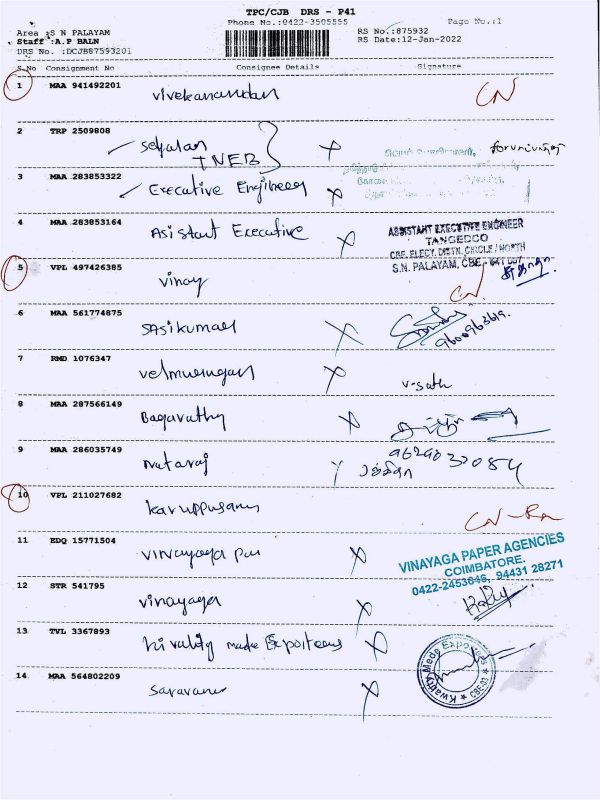 TPC/CJB DRS - P41
Phone No.:0422-3505555
Page No.:1
Area :S N PALAYAM
Staff :A.P BALN
DRS No. :DCJB87593201
RS No.:875932
RS Date:12-Jan-2022
S.No Consignment No Consignee Details Signature
1 MAA 941492201 Vivekanandan CN
2 TRP 2509808 Selvalan
TNEB X
3 MAA 283853322 Executive Engineer X
4 MAA 283853164 Asistant Executive X
ASSISTANT EXECUTIVE ENGINEER
TANGEDCO
CBE. ELECY. DISTN. CIRCLE / NORTH
S.N. PALAYAM, CBE - 641 007
5 VPL 497426385 Vinay CN
6 MAA 561774875 Sasikumar X
7 RMD 1076347 Velmurugan X V-Sath
8 MAA 287566149 Bagavathy X
9 MAA 286035749 Nataraj
10 VPL 211027682 Karuppusamy CN-Rn
11 EDQ 15771504 Vinayaga X
VINAYAGA PAPER AGENCIES
COIMBATORE.
0422-2453646, 94431 28271
12 STR 541795 Vinayaga X
13 TVL 3367893 made Exporteers X
Kwality Mede Exportees
CBE-03
14 MAA 564802209 Saravana X